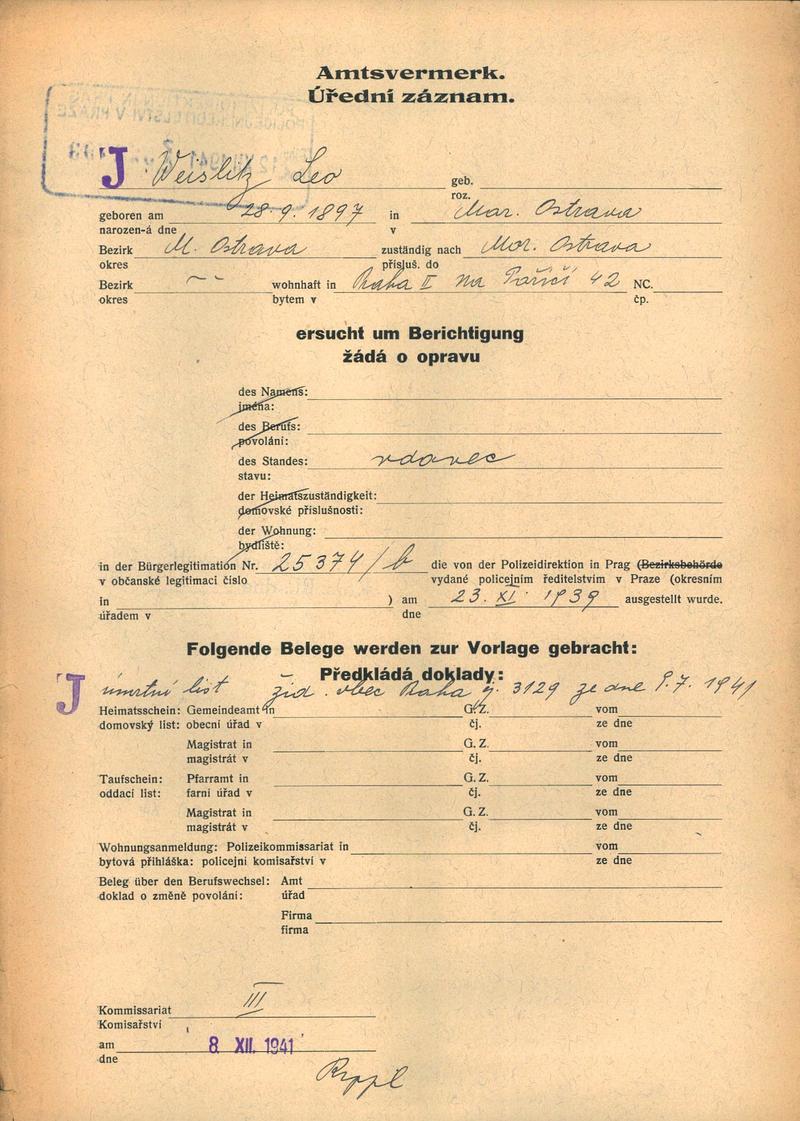 Amtsvermerk.
Úřední záznam.
J Weislitz Leo geb.
roz.
geboren am 28. 9. 1897 in Mor. Ostrava
narozen-á dne v
Bezirk M. Ostrava zuständig nach Mor. Ostrava
okres přísluš. do
Bezirk wohnhaft in Praha II Na Poříčí 42 NC.
okres bytem v čp.
ersucht um Berichtigung
žádá o opravu
des Namens:
jména:
des Berufs:
povolání:
des Standes: vdovec
stavu:
der Heimatszuständigkeit:
domovské příslušnosti:
der Wohnung:
bydliště:
in der Bürgerlegitimation Nr. 25374/b die von der Polizeidirektion in Prag (Bezirksbehörde
v občanské legitimaci číslo vydané policejním ředitelstvím v Praze (okresním
in ) am 23. XI. 1939 ausgestellt wurde.
úřadem v dne
Folgende Belege werden zur Vorlage gebracht:
Předkládá doklady:
J úmrtní list žid. obec Praha čj. 3129 ze dne 9. 7. 1941
Heimatsschein: Gemeindeamt in G. Z. vom
domovský list: obecní úřad v čj. ze dne
Magistrat in G. Z. vom
magistrát v čj. ze dne
Taufschein: Pfarramt in G. Z. vom
oddací list: farní úřad v čj. ze dne
Magistrat in G. Z. vom
magistrát v čj. ze dne
Wohnungsanmeldung: Polizeikommissariat in vom
bytová přihláška: policejní komisařství v ze dne
Beleg über den Berufswechsel: Amt
doklad o změně povolání: úřad
Firma
firma
Kommissariat III
Komisařství
am 8. XII. 1941
dne